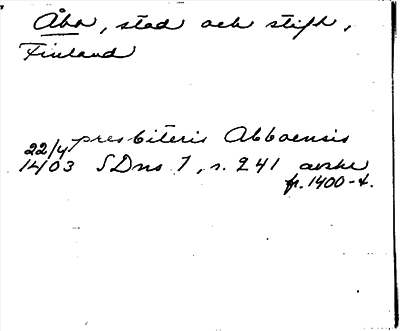 Åbo, stad och stift,
Finland
22/4 presbiteris Abboensis
1403 SDns 1, s. 241 avskr
fr. 1400-t.